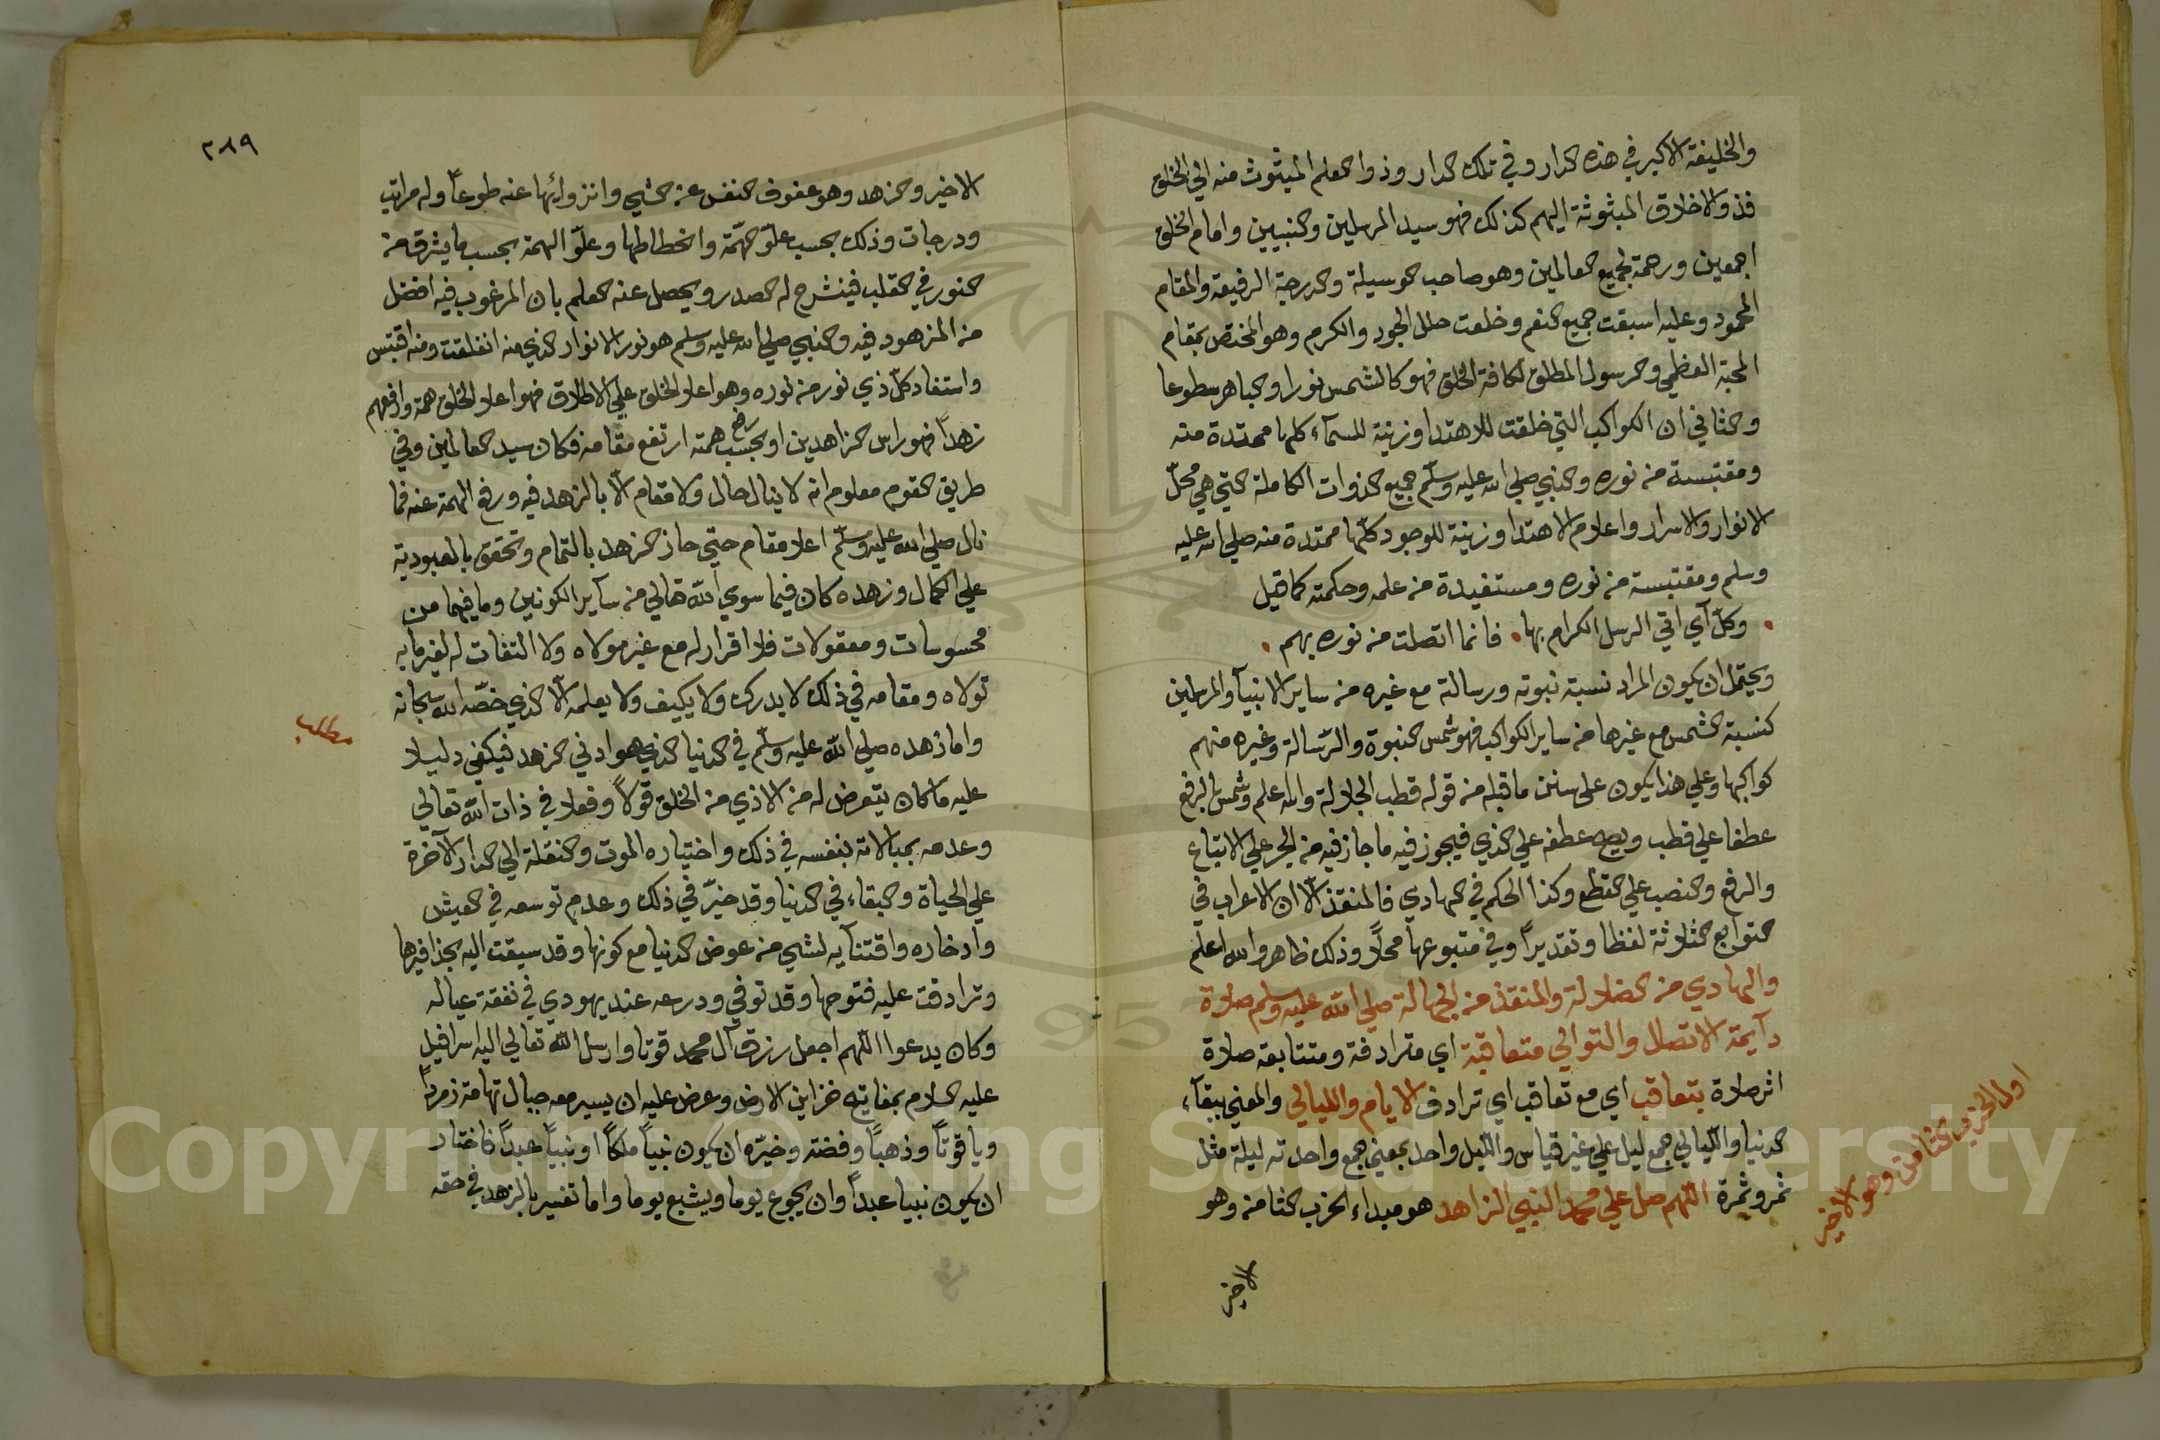 والخليفة الاكبر في هذه الدار وفي تلك الدار وذو العلم المبثوث منه الي الخلق
فذو الاخلاق المبثوثة اليهم كذلك فهو سيد المرسلين والنبيين وامام الخلق
اجمعين ورحمة لجميع العالمين وهو صاحب الوسيلة والدرجة الرفيعة والمقام
المحمود وعليه اسبغت جميع النعم وخلعت حلل الجود والكرم وهو المختص بمقام
المحبة العظمي والرسول المطلق لكافة الخلق فهو كالشمس نورا والباهر سطوعا
والثاني ان الكواكب التي خلقت للاهتدا وزينة للسمآء كلها ممتدة منه
ومقتبسة من نوره والنبي صلي الله عليه وسلم جميع الذوات الكاملة التي هي محل
الانوار والاسرار واعلام الاهتدا وزينة للوجود كلها ممتدة منه صلي الله عليه
وسلم ومقتبسة من نوره ومستفيدة من علمه وحكمته كما قيل
وكل آي اتي الرسل الكرام بها فانما اتصلت من نوره بهم
ويحتمل ان يكون المراد نسبة نبوته ورسالة مع غيره من ساير الانبيآ والمرسلين
كنسبة الشمس مع غيرها من ساير الكواكب فهو شمس النبوة والرسالة وغيره منهم
كواكبها وعلي هذا يكون على سنن ما قبله من قوله قطب الجلالة والله اعلم وشمس بالرفع
عطفا علي قطب ويصح عطفه علي الذي فيجوز فيه ما جاز فيه من الجر علي الاتباع
والرفع والنصب علي القطع وكذا الحكم في الهادي فالمنقذ الا ان الاعراب في
التوابع الثلاثة لفظا وتقديرا وفي متبوعها محلا وذلك ظاهر والله اعلم
والهادي من الضلالة والمنقذ من الجهالة صلي الله عليه وسلم صلاة
دآيمة الاتصال والتوالي متعاقبة اي مترادفة ومتتابعة صلاة
اثر صلاة بتعاقب اي مع تعاقب اي ترادف الايام والليالي والمعني ببقآء
الدنيا والليالي جمع ليل علي غير قياس والليل واحد بمعني جمع واحدته ليلة مثل
ثمر وثمرة اللهم صل علي محمد النبي الزاهد هو مبداء الحزب الثامن وهو
اول الحزب الثامن وهو الاخير
الاخير
٢٨٩
الاخير والزهد وهو عفوف النفس عن الشي وانزوائها عنه طوعا وله مراتب
ودرجات وذلك بحسب علو الهمة وانحطاطها وعلو الهمة بحسب ما يشرق من
النور في القلب فينشرح له الصدر ويحصل عنه العلم بان المرغوب فيه افضل
من المزهود فيه والنبي صلي الله عليه وسلم هو نور الانوار الذي منه انفلقت ومنه اقتبس
واستفاد كل ذي نور من نوره وهو اعلا الخلق علي الاطلاق فهو اعلا الخلق همة وارفعهم
زهدا فهو راس الزاهدين او بحسب رفع همته ارتفع مقامه فكان سيد العالمين وفي
طريق القوم معلوم انه لا ينال حال ولا مقام الا بالزهد فيه ورفع الهمة عنه فما
نال صلي الله عليه وسلم اعلا مقام حتي حاز الزهد بالتمام وتحقق بالعبودية
علي الكمال وزهده كان فيما سوي الله تعالي من سآير الكونين وما فيهما من
محسوسات ومعقولات فلا اقرار له مع غير مولاه ولا التفات له لغير ما به
تولاه ومقامه في ذلك لا يدرك ولا يكيف ولا يعلمه الا الذي خصه الله سبحانه
مطلب
واما زهده صلي الله عليه وسلم في الدنيا الذي هو ادني الزهد فيكفي دليلا
عليه ما كان يتعرض له من الاذي من الخلق قولا وفعلا في ذات الله تعالي
وعدمه بمبالاته بنفسه في ذلك واختياره الموت والنقلة الي الدار الآخرة
علي الحياة والبقاء في الدنيا وقد خير في ذلك وعدم توسعه في العيش
وادخاره واقتنآيه لشي من عوض الدنيا مع كونها وقد سيقت اليه بحذافيرها
وترادفت عليه فتوحها وقد توفي ودرعه عند يهودي في نفقة عياله
وكان يدعوا اللهم اجعل رزق آل محمد قوتا وارسل الله تعالي اليه اسرافيل
عليه السلام بمفاتيح خزاين الارض وعرض عليه ان يسير معه جبال تهامة زمردا
وياقوتا وذهبا وفضة وخيره ان يكون نبيا ملكا او نبيا عبدا فاختار
ان يكون نبيا عبدا وان يجوع يوما ويشبع يوما واما تفسير بالزهد في حقه
Copyright © King Saud University
957